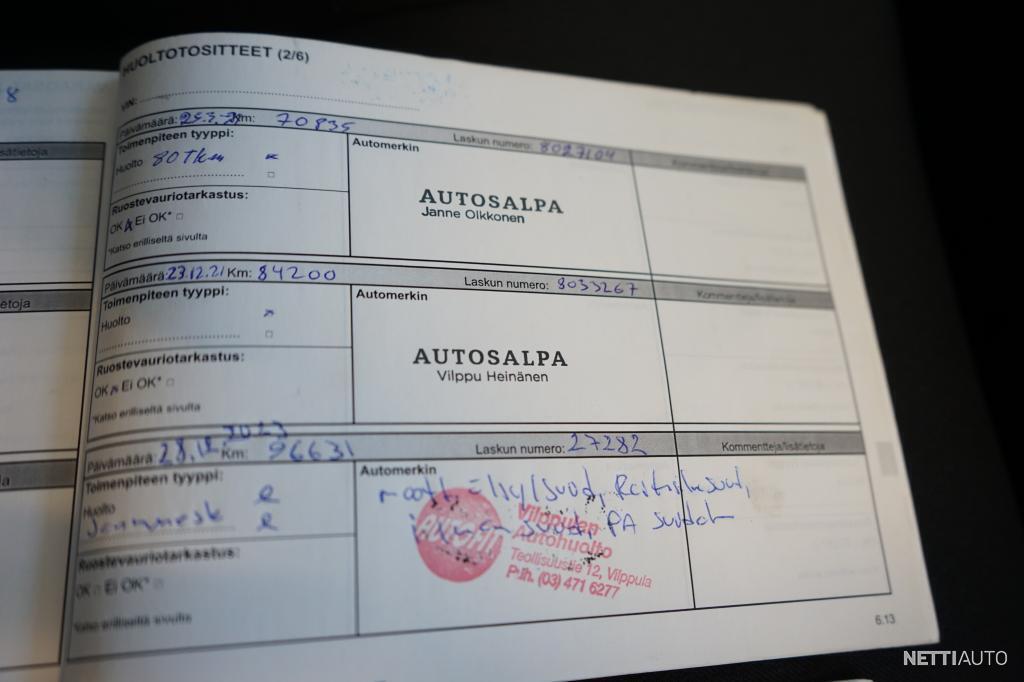 8
HUOLTOTOSITTEET (2/6)
VIN:
Päivämäärä: Km: 70835 Laskun numero: 8027104
Toimenpiteen tyyppi:
Automerkin
Huolto 80Tkm
AUTOSALPA
Janne Olkkonen
Ruostevauriotarkastus:
OK Ei OK*
*Katso erilliseltä sivulta
Päivämäärä: 23.12.21 Km: 84200 Laskun numero: 8033267
Toimenpiteen tyyppi:
Automerkin
Kommentteja/lisätietoja
Huolto
AUTOSALPA
Vilppu Heinänen
Ruostevauriotarkastus:
OK Ei OK*
*Katso erilliseltä sivulta
Päivämäärä: 28.12.2023 Km: 96631 Laskun numero: 27282
Kommentteja/lisätietoja
Toimenpiteen tyyppi:
Automerkin
Huolto
Ruostevauriotarkastus:
OK Ei OK*
Katso erilliseltä sivulta
PA
Vilppulan
Autohuolto
Teollisuustie 12, Vilppula
P.ih. (03) 471 6277
6.13
NETTIAUTO